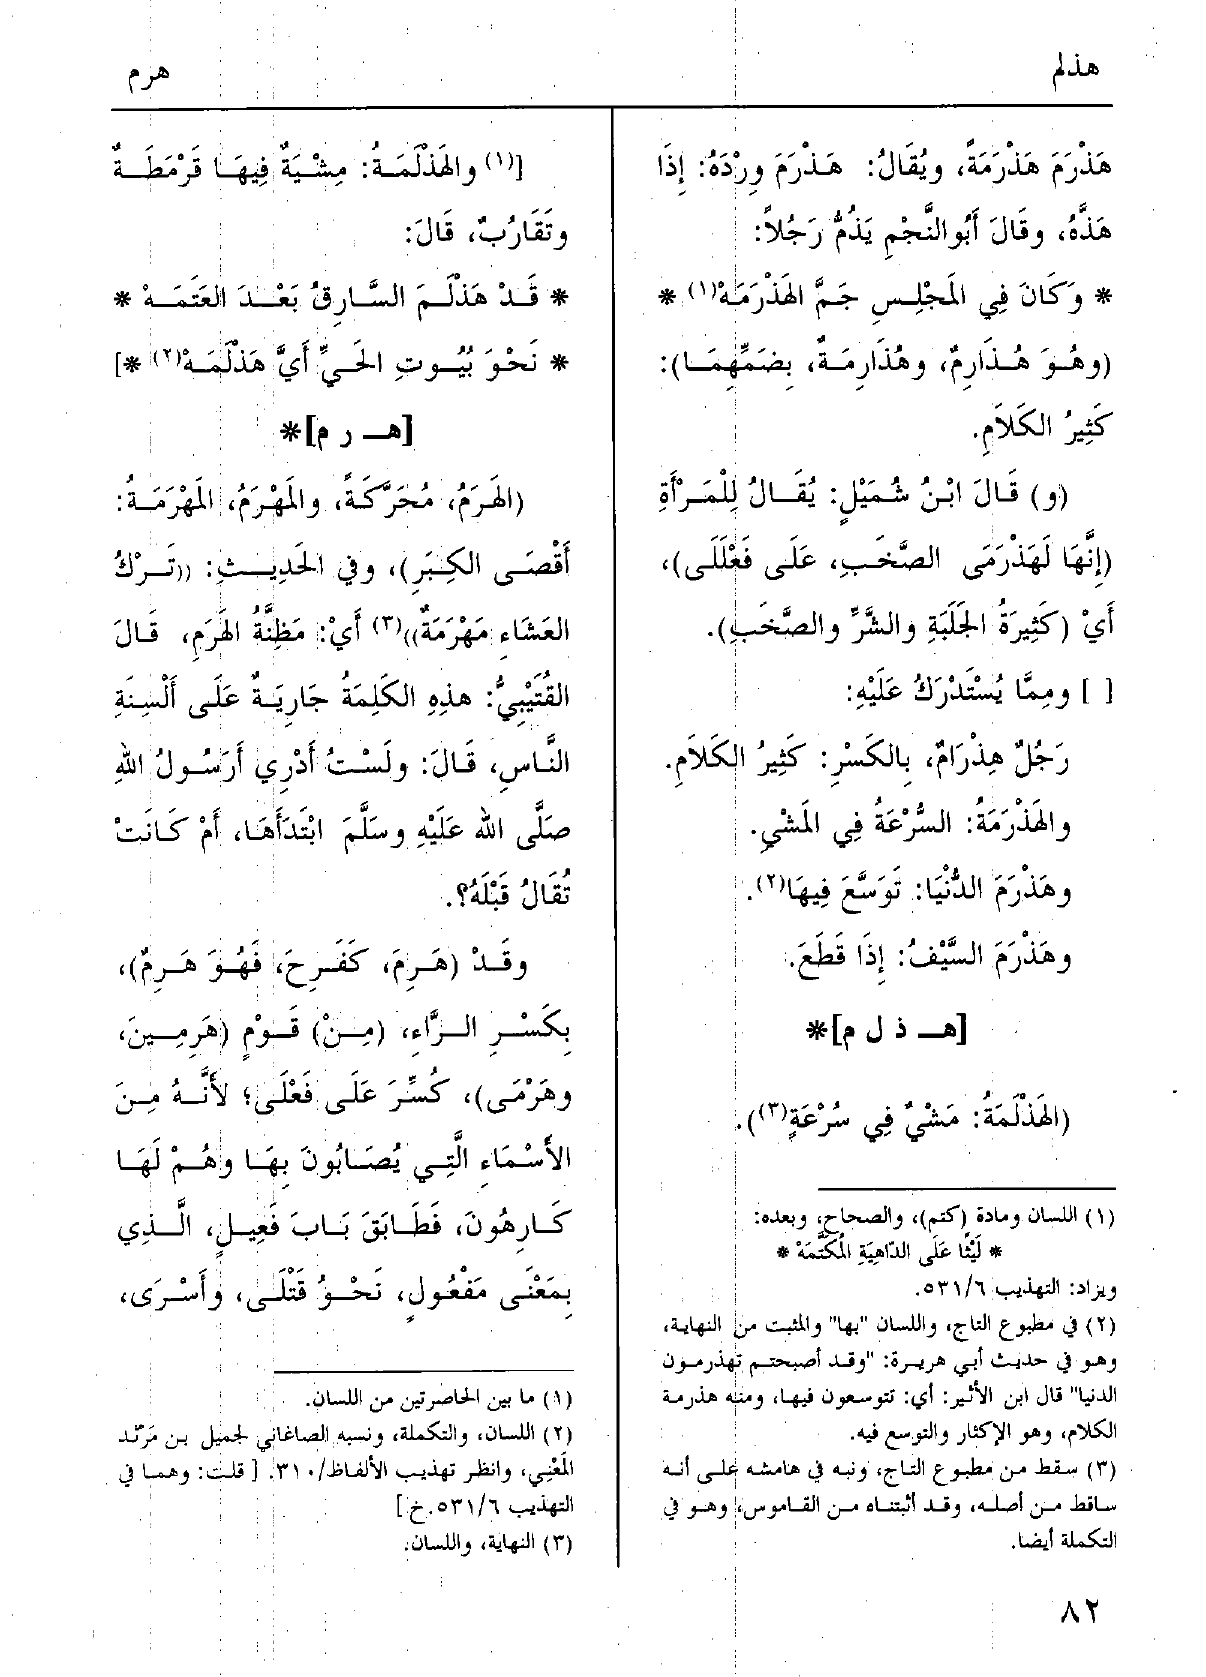 هذلم
هرم
هَذْرَمَ هَذْرَمَةً، ويُقَالُ: هَذْرَمَ وِرْدَهُ: إِذَا
هَذَّهُ، وقَالَ أَبُوالنَّجْمِ يَذُمُّ رَجُلاً:
* وَكَانَ فِي المَجْلِسِ جَمَّ الهَذْرَمَهْ(١) *
(وهُوَ هُذَارِمٌ، وهُذَارِمَةٌ، بِضَمِّهِمَا):
كَثِيرُ الكَلاَمِ.
(و) قَالَ ابْنُ شُمَيْلٍ: يُقَالُ لِلْمَرْأَةِ
(إِنَّهَا لَهَذْرَمَى الصَّخَبِ، عَلَى فَعْلَلَى)،
أَيْ (كَثِيرَةُ الجَلَبَةِ والشَّرِّ والصَّخَبِ).
[ ] ومِمَّا يُسْتَدْرَكُ عَلَيْهِ:
رَجُلٌ هِذْرَامٌ، بِالكَسْرِ: كَثِيرُ الكَلاَمِ.
والهَذْرَمَةُ: السُّرْعَةُ فِي المَشْيِ.
وهَذْرَمَ الدُّنْيَا: تَوَسَّعَ فِيهَا(٢).
وهَذْرَمَ السَّيْفُ: إِذَا قَطَعَ.
[هـ ذ ل م]*
(الهَذْلَمَةُ: مَشْيٌ فِي سُرْعَةٍ(٣)).
(١) اللسان ومادة (كتم)، والصحاح، وبعده:
* لَيْثًا عَلَى الدّاهِيَةِ المُكَتَّمَهْ *
ويزاد: التهذيب ٥٣١/٦.
(٢) في مطبوع التاج، واللسان "بها" والمثبت من النهاية،
وهو في حديث أبي هريرة: "وقد أصبحتم تهذرمون
الدنيا" قال ابن الأثير: أي: تتوسعون فيها، ومنه هذرمة
الكلام، وهو الإكثار والتوسع فيه.
(٣) سقط من مطبوع التاج، ونبه في هامشه على أنه
ساقط من أصله، وقد أثبتناه من القاموس، وهو في
التكملة أيضا.
[(١) والهَذْلَمَةُ: مِشْيَةٌ فِيهَا قَرْمَطَةٌ
وتَقَارُبٌ، قَالَ:
* قَدْ هَذْلَمَ السَّارِقُ بَعْدَ العَتَمَهْ *
* نَحْوَ بُيُوتِ الحَيِّ أَيَّ هَذْلَمَهْ(٢) *]
[هـ ر م]*
(الهَرَمُ، مُحَرَّكَةً، والمَهْرَمُ، المَهْرَمَةُ:
أَقْصَى الكِبَرِ)، وفي الحَدِيثِ: ((تَرْكُ
العَشَاءِ مَهْرَمَةٌ))(٣) أَيْ: مَظِنَّةُ الهَرَمِ، قَالَ
القُتَيْبِيُّ: هذِهِ الكَلِمَةُ جَارِيَةٌ عَلَى أَلْسِنَةِ
النَّاسِ، قَالَ: ولَسْتُ أَدْرِي أَرَسُولُ اللهِ
صَلَّى الله عَلَيْهِ وسَلَّمَ ابْتَدَأَهَا، أَمْ كَانَتْ
تُقَالُ قَبْلَهُ؟.
وقَدْ (هَرِمَ، كَفَرِحَ، فَهُوَ هَرِمٌ)،
بِكَسْرِ الرَّاءِ، (مِنْ) قَوْمٍ (هَرِمِينَ،
وهَرْمَى)، كُسِّرَ عَلَى فَعْلَى؛ لأَنَّهُ مِنَ
الأَسْمَاءِ الَّتِي يُصَابُونَ بِهَا وهُمْ لَهَا
كَارِهُونَ، فَطَابَقَ بَابَ فَعِيلٍ، الَّذِي
بِمَعْنَى مَفْعُولٍ، نَحْوُ قَتْلَى، وأَسْرَى،
(١) ما بين الحاصرتين من اللسان.
(٢) اللسان، والتكملة، ونسبه الصاغاني لجميل بن مَرْثَد
المَعْنِي، وانظر تهذيب الألفاظ/٣١٠. [ قلت: وهما في
التهذيب ٥٣١/٦.خ]
(٣) النهاية، واللسان.
٨٢